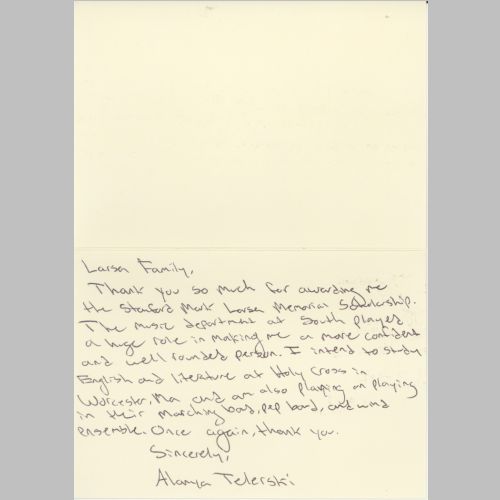 Larsen Family,
Thank you so much for awarding me
the Stanford Mark Larsen Memorial Scholarship.
The music department at South played
a huge role in making me a more confident
and well rounded person. I intend to study
English and literature at Holy Cross in
Worcester, Ma and am also planning on playing
in their marching band, pep band, and wind
ensemble. Once again, thank you.
Sincerely,
Alanya Telerski